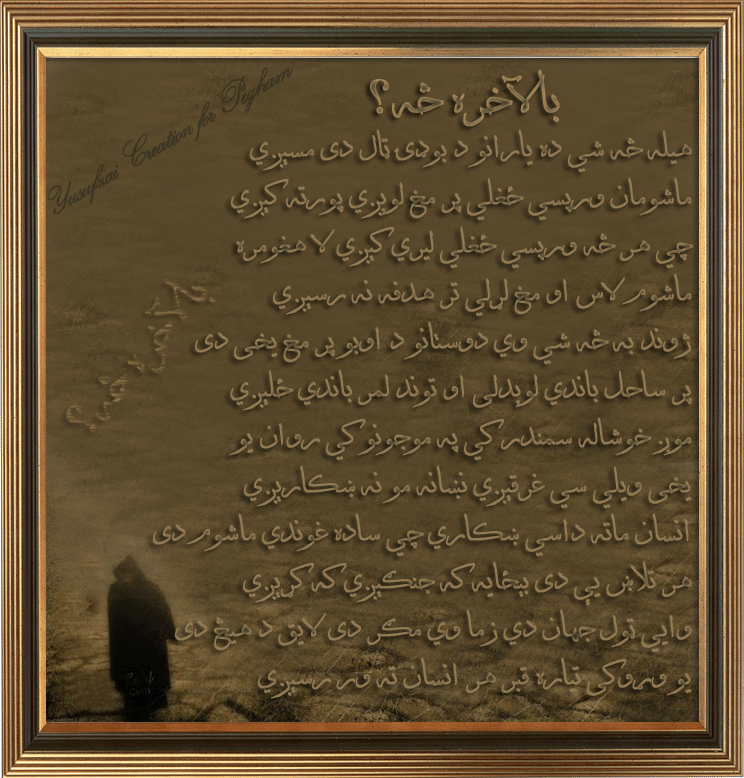 بالآخره څه؟
هيله څه شي ده يارانو د بوډۍ ټال دی مسېږي
ماشومان ورپسي ځغلي پر مخ لوېږي پورته کېږي
چي هر څه ورپسي ځغلي ليري کېږي لا هغومره
ماشوم لاس او مخ لړلي تر هدفه نه رسېږي
ژوند به څه شي وي دوستانو د اوبو پر مخ يخی دی
پر ساحل باندي لوېدلی او توند لمر باندي ځلېږي
موږ خوشاله سمندر کي په موجونو کي روان يو
يخی ويلي سي غرقېږي نښانه مو نه ښکارېږي
انسان ماته داسي ښکاري چي ساده غوندي ماشوم دی
هر تلاش يې دی بېځايه که جنګېږي که کرېږي
وايي ټول جهان دي زما وي مګر دی لايق د هيڅ دی
يو وړوکی تياره قبر هر انسان ته ور رسېږي
Yusufzai Creation for Pegham
بالآخره څه؟